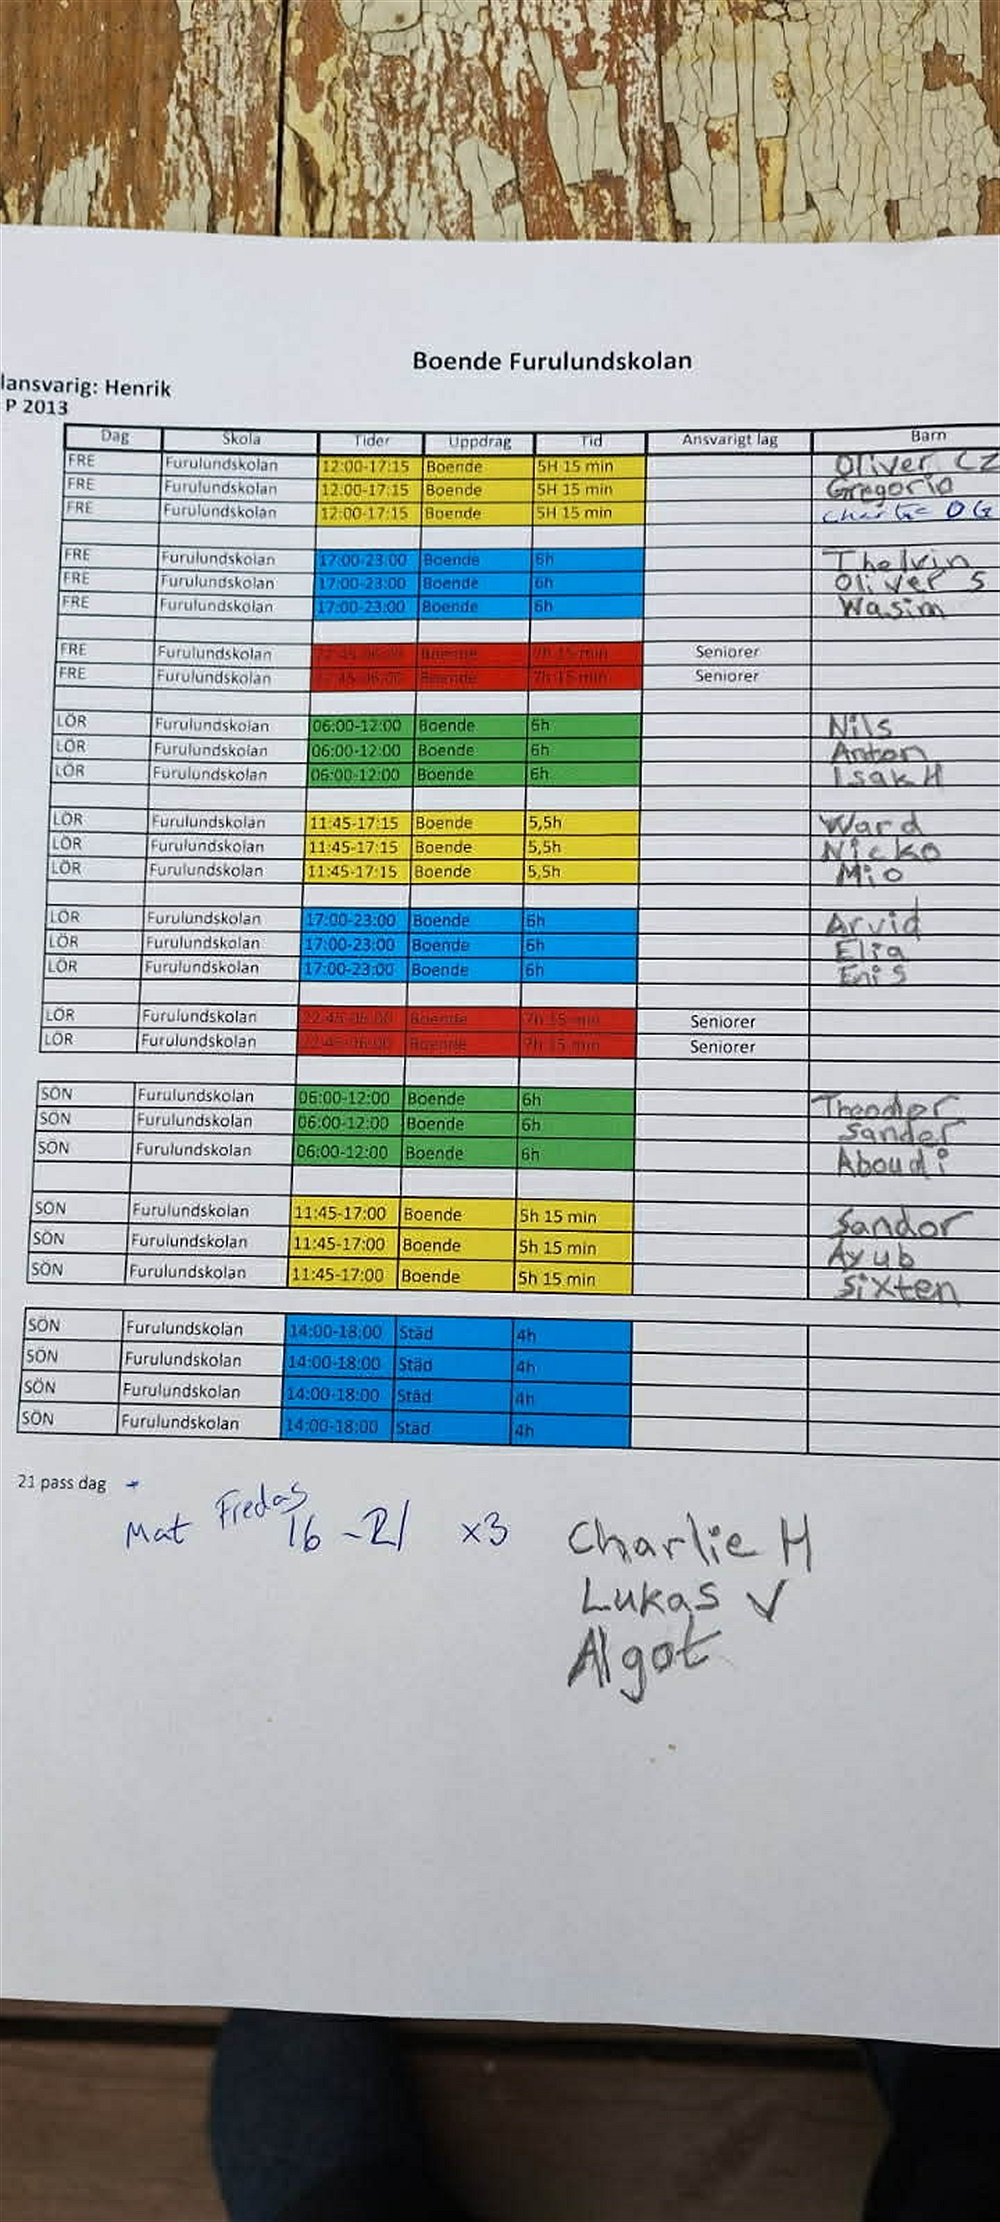 Boende Furulundskolan
lansvarig: Henrik
P 2013
Dag Skola Tider Uppdrag Tid Ansvarigt lag Barn
FRE Furulundskolan 12:00-17:15 Boende 5H 15 min Oliver CZ
FRE Furulundskolan 12:00-17:15 Boende 5H 15 min Gregorio
FRE Furulundskolan 12:00-17:15 Boende 5H 15 min Charlie OG
FRE Furulundskolan 17:00-23:00 Boende 6h Thelvin
FRE Furulundskolan 17:00-23:00 Boende 6h Oliver S
FRE Furulundskolan 17:00-23:00 Boende 6h Wasim
FRE Furulundskolan 22:45-06:00 Boende 7h 15 min Seniorer
FRE Furulundskolan 22:45-06:00 Boende 7h 15 min Seniorer
LÖR Furulundskolan 06:00-12:00 Boende 6h Nils
LÖR Furulundskolan 06:00-12:00 Boende 6h Anton
LÖR Furulundskolan 06:00-12:00 Boende 6h Isak H
LÖR Furulundskolan 11:45-17:15 Boende 5,5h Ward
LÖR Furulundskolan 11:45-17:15 Boende 5,5h Nicko
LÖR Furulundskolan 11:45-17:15 Boende 5,5h Mio
LÖR Furulundskolan 17:00-23:00 Boende 6h Arvid
LÖR Furulundskolan 17:00-23:00 Boende 6h Elia
LÖR Furulundskolan 17:00-23:00 Boende 6h Enis
LÖR Furulundskolan 22:45-06:00 Boende 7h 15 min Seniorer
LÖR Furulundskolan 22:45-06:00 Boende 7h 15 min Seniorer
SÖN Furulundskolan 06:00-12:00 Boende 6h Theodor
SÖN Furulundskolan 06:00-12:00 Boende 6h Sander
SÖN Furulundskolan 06:00-12:00 Boende 6h Aboudi
SÖN Furulundskolan 11:45-17:00 Boende 5h 15 min Sandor
SÖN Furulundskolan 11:45-17:00 Boende 5h 15 min Ayub
SÖN Furulundskolan 11:45-17:00 Boende 5h 15 min Sixten
SÖN Furulundskolan 14:00-18:00 Städ 4h
SÖN Furulundskolan 14:00-18:00 Städ 4h
SÖN Furulundskolan 14:00-18:00 Städ 4h
SÖN Furulundskolan 14:00-18:00 Städ 4h
21 pass dag
Mat Fredag 16-21 x3 Charlie H
Lukas V
Algot